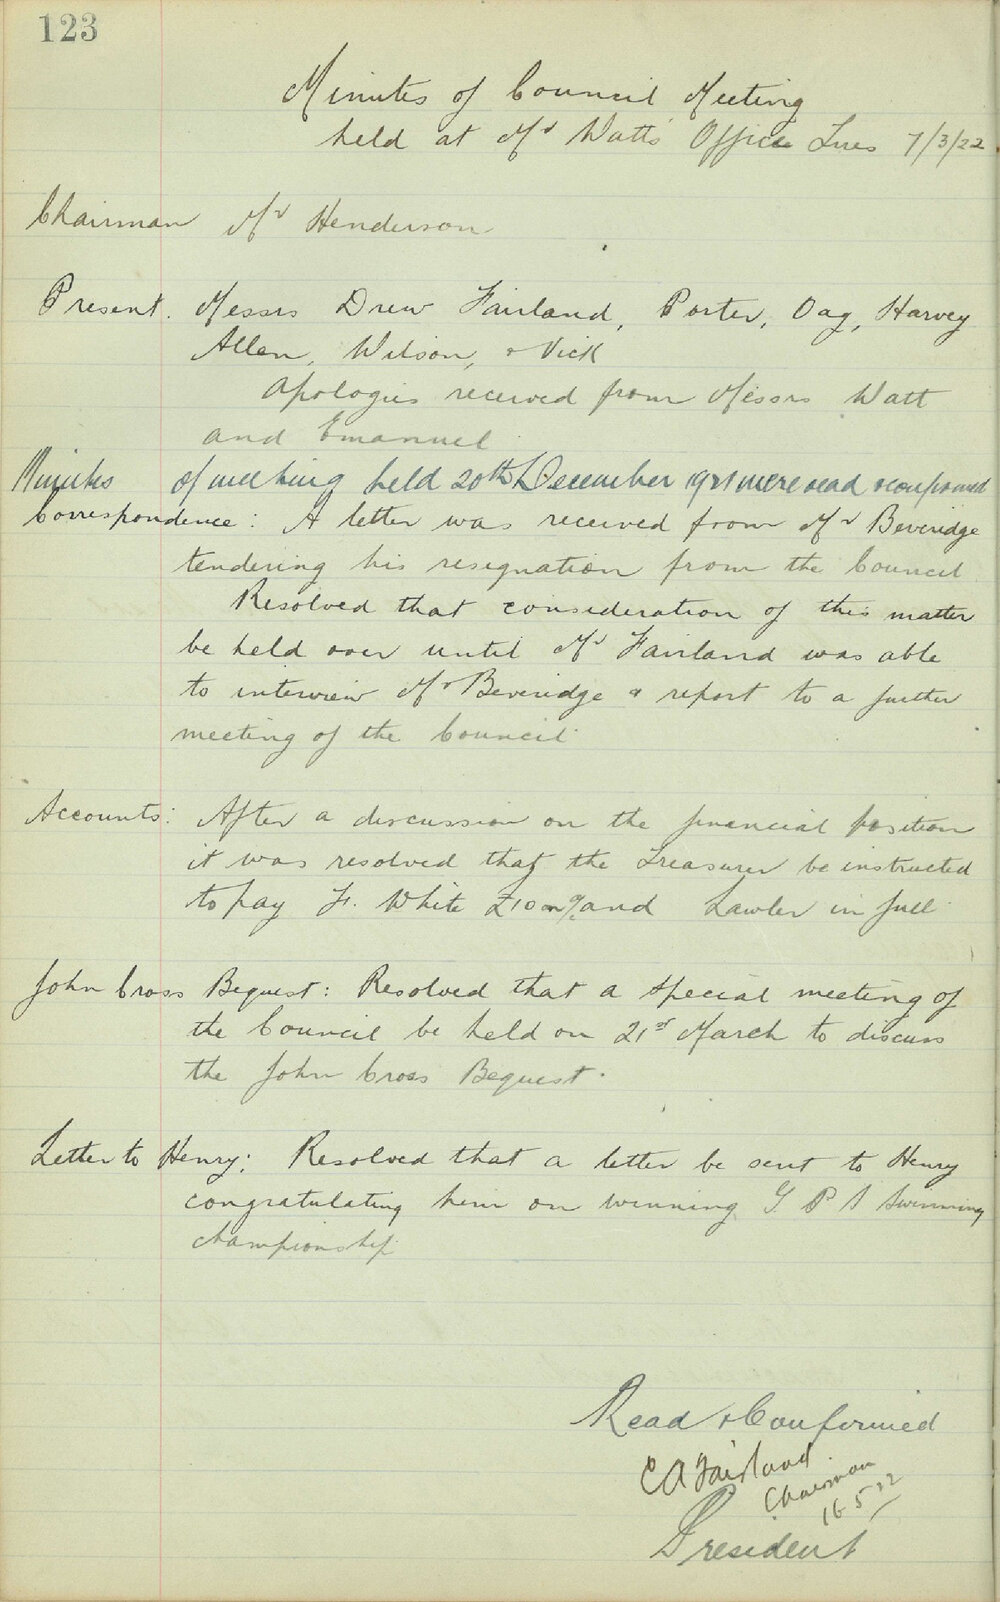 123
Minutes of Council Meeting
held at Mr Watts Office Tues 7/3/22
Chairman Mr Henderson
Present. Messrs Drew Fairland, Porter, Oag, Harvey
Allen, Wilson, & Vick
Apologies received from Messrs Watt
and Emanuel
Minutes of meeting held 20th December 1921 were read & confirmed
Correspondence: A letter was received from Mr Beveridge
tendering his resignation from the Council
Resolved that consideration of this matter
be held over until Mr Fairland was able
to interview Mr Beveridge & report to a further
meeting of the Council
Accounts: After a discussion on the financial position
it was resolved that the Treasurer be instructed
to pay F. White £10 on a/c and Lawler in full
John Cross Bequest: Resolved that a special meeting of
the Council be held on 21st March to discuss
the John Cross Bequest.
Letter to Henry: Resolved that a letter be sent to Henry
congratulating him on winning G P S Swimming
championship
Read & Confirmed
C A Fairland
Chairman
16 5 22
President